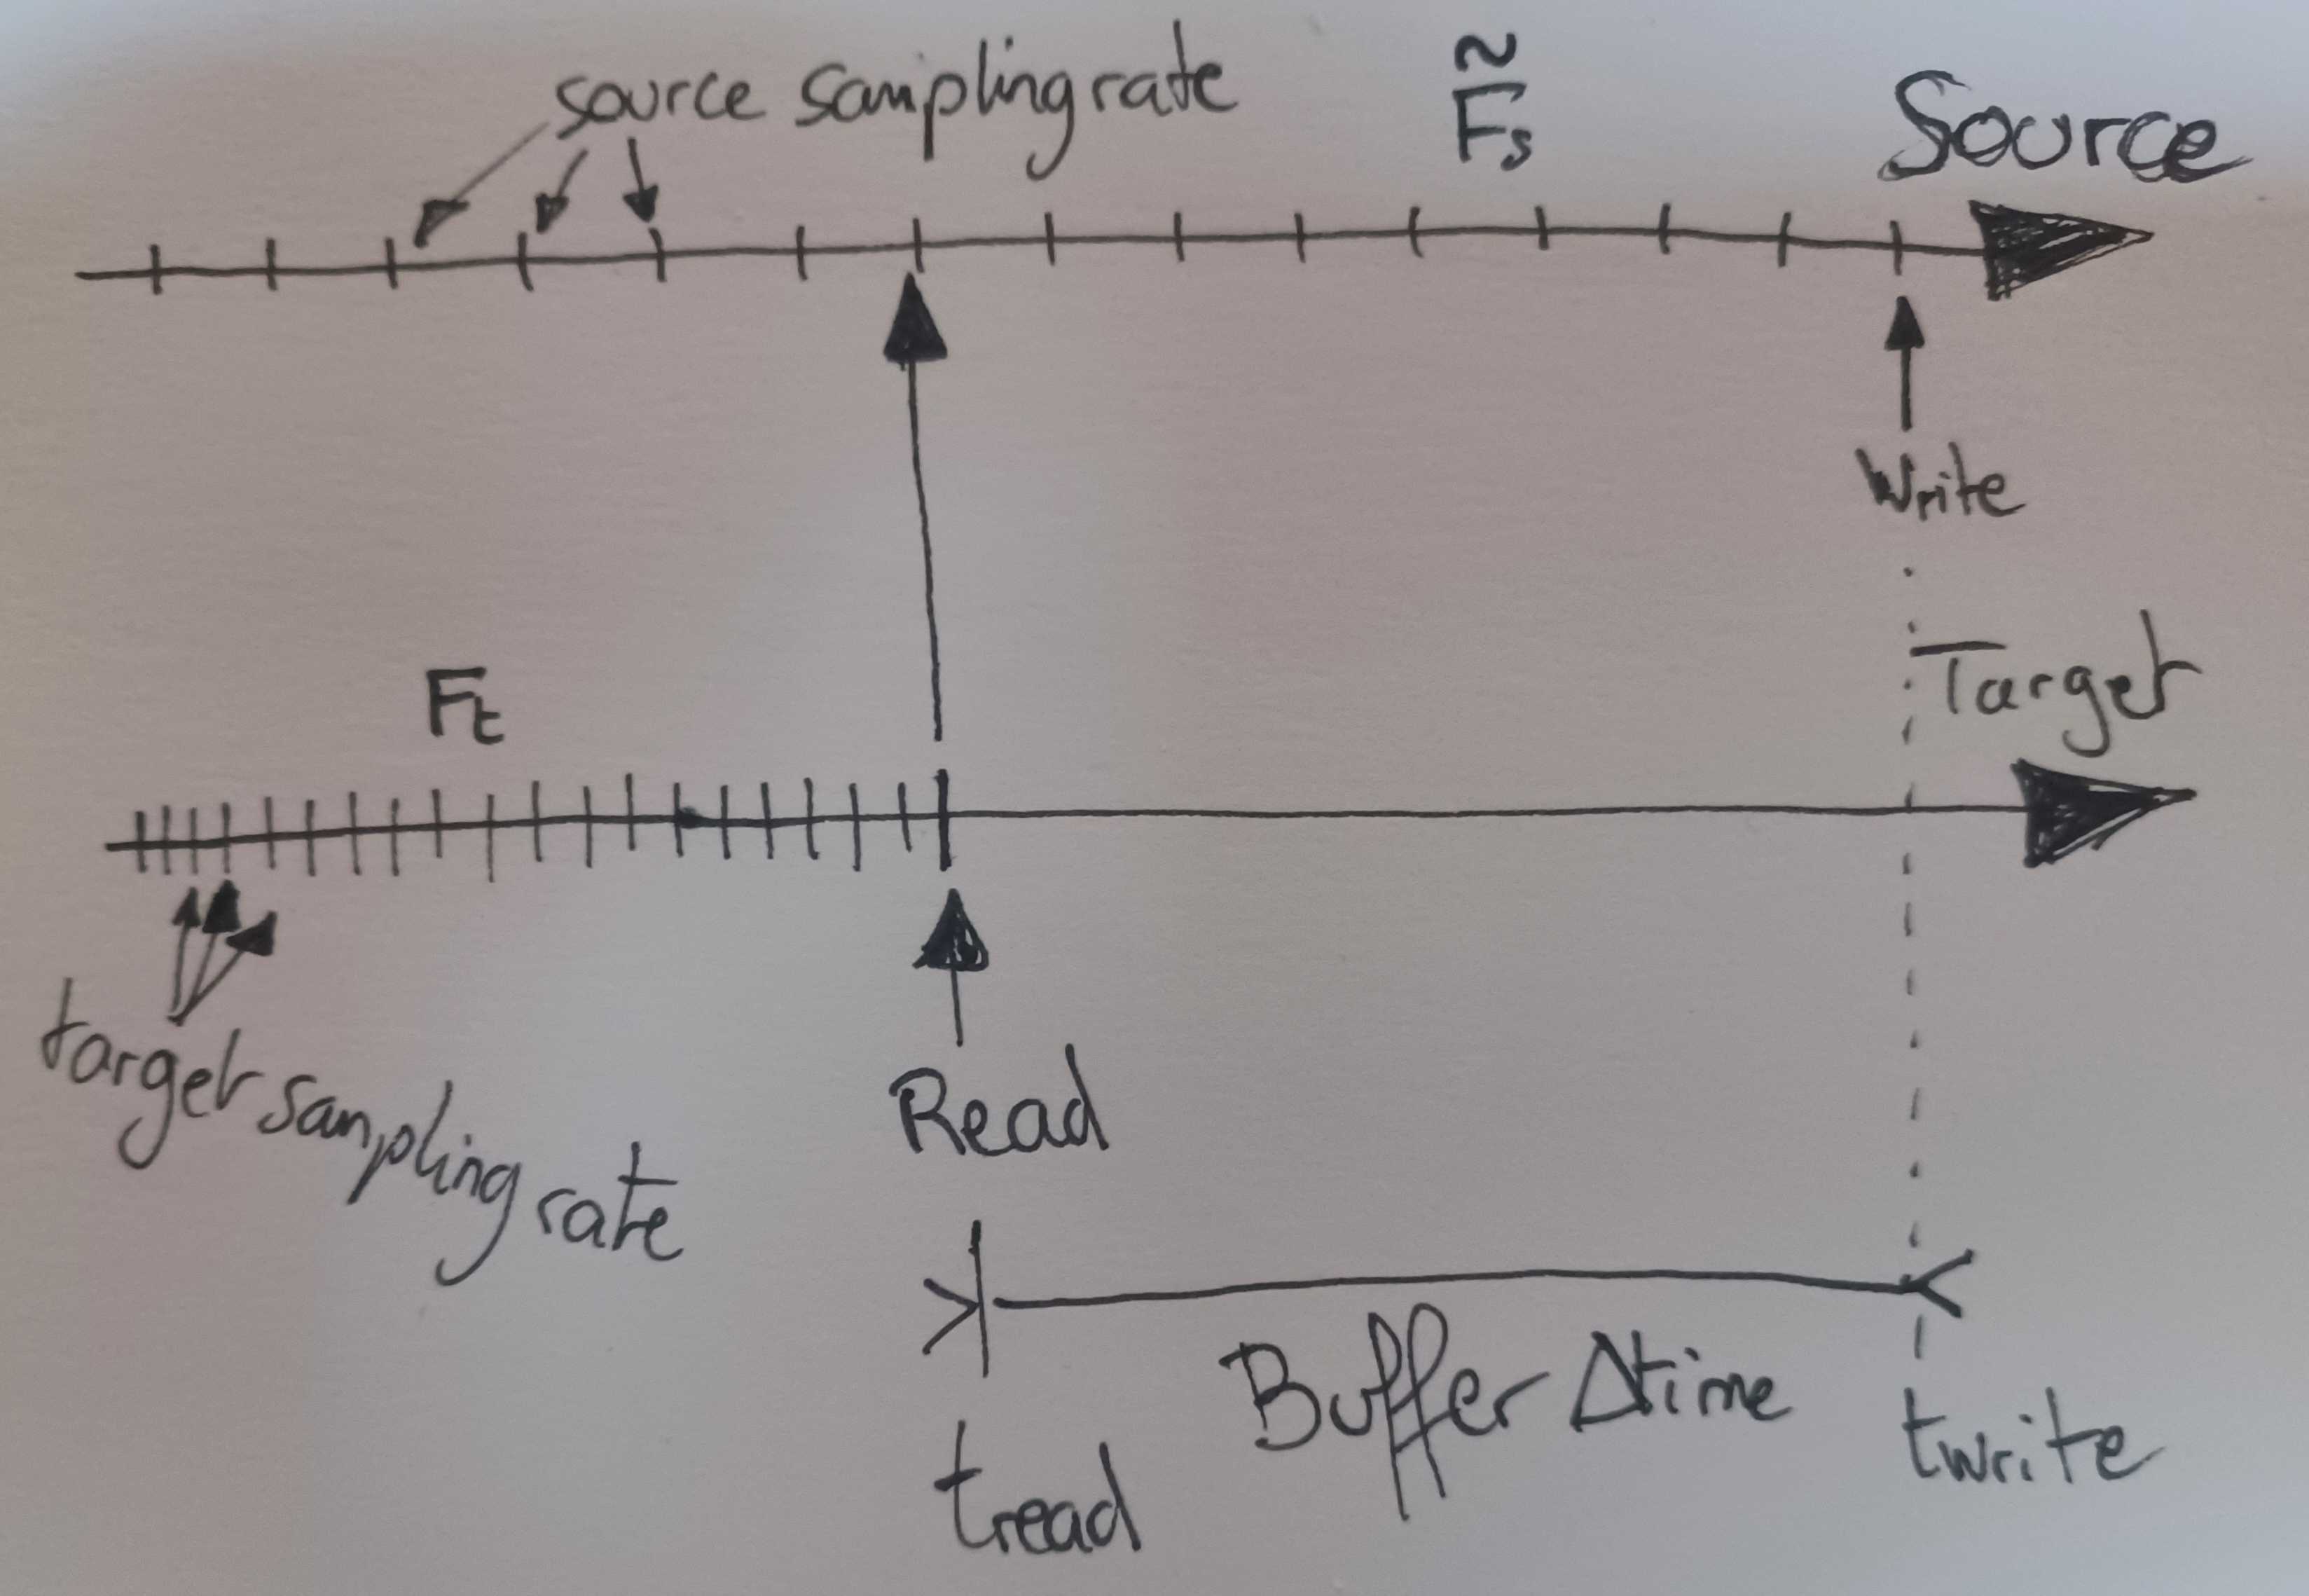 source sampling rate
F̃s
Source
Write
Target
Ft
target sampling rate
Read
Buffer Δtime
tread
twrite